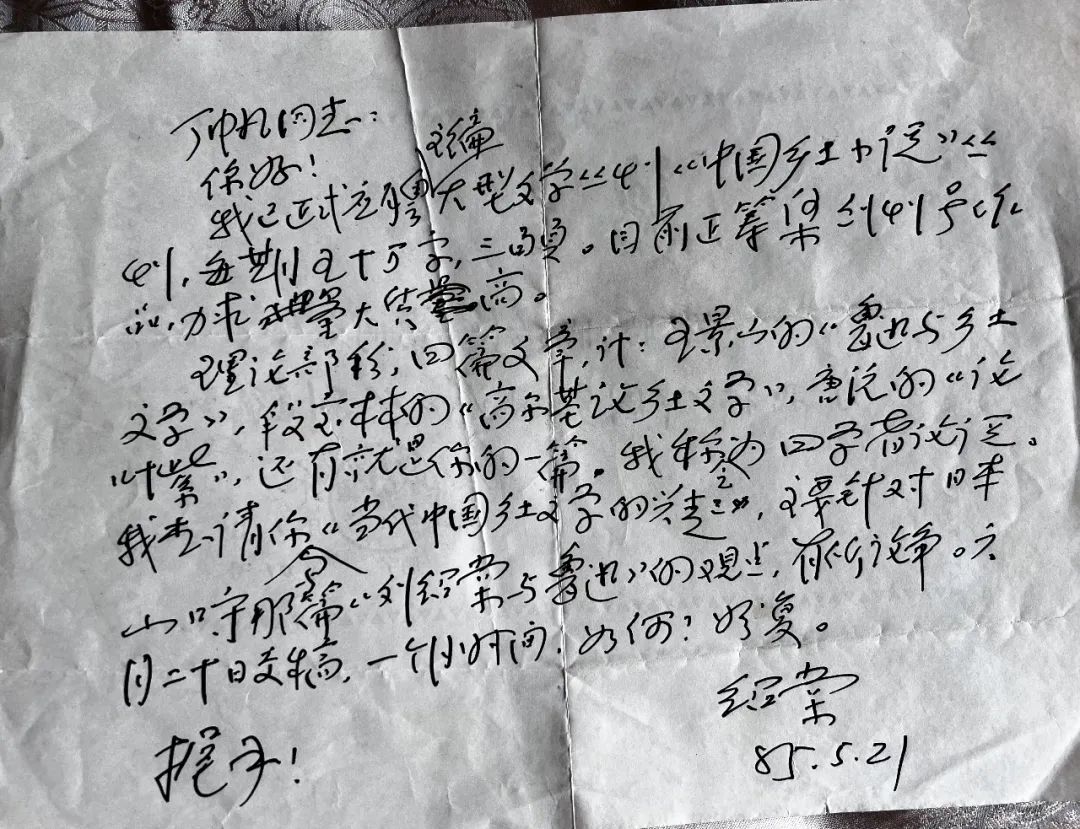 丁帆同志：
你好！
我已正式应聘主编大型文学丛刊《中国乡土小说》丛
刊，每期五十万字，三四员。目前正筹集创刊号作
品，力求量大质高。
理论部分，四篇文章，计：王景山的《鲁迅与乡土
文学》，段宝林的《高尔基论乡土文学》，唐沅的《论
叶紫》，还有就是你的一篇。我称之为四学者论谈。
我想请你写《当代中国乡土文学的兴起》，主要针对日本
山口守那篇《刘绍棠与鲁迅》的观点，有所论争。六
月二十日交稿，一个月时间，如何？好复。
握手！
绍棠
85.5.21